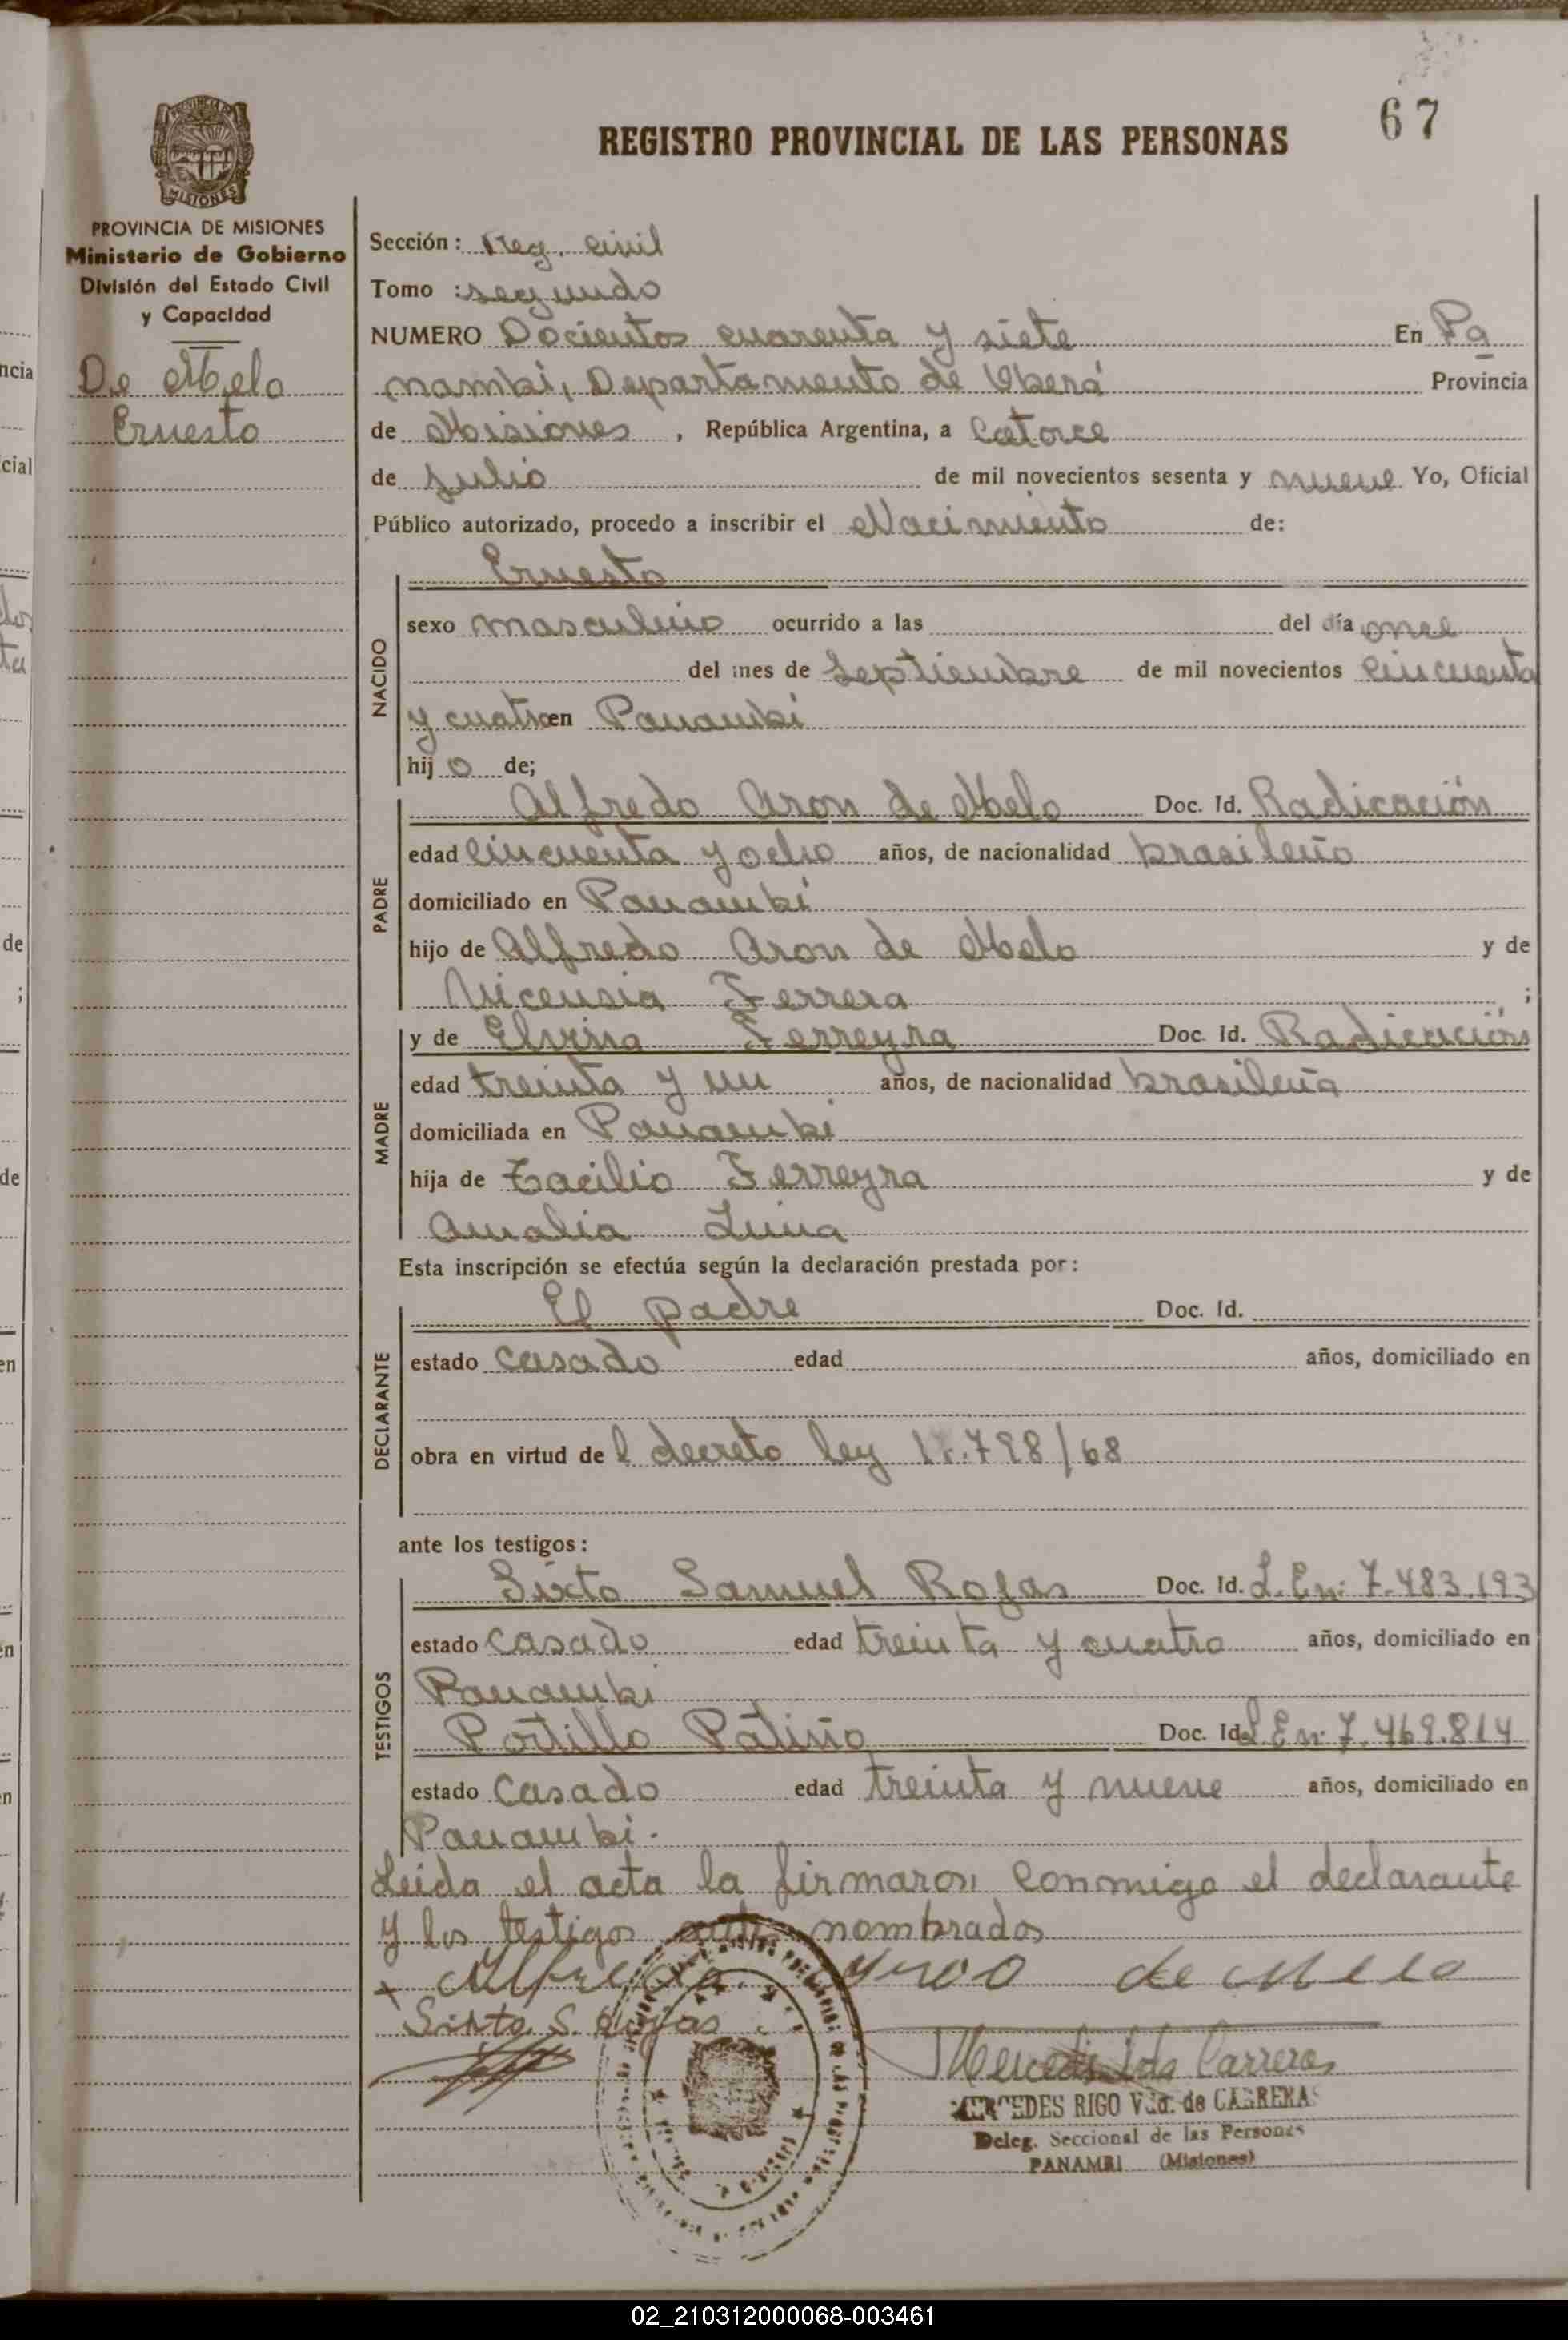 67
REGISTRO PROVINCIAL DE LAS PERSONAS
PROVINCIA DE MISIONES
MISIONES
PROVINCIA DE MISIONES
Ministerio de Gobierno
División del Estado Civil
y Capacidad
De Melo
Ernesto
Sección: Reg. civil
Tomo : segundo
NUMERO Docientos cuarenta y siete En Pa
nambi, Departamento de Oberá Provincia
de Misiones, República Argentina, a Catorce
de Julio de mil novecientos sesenta y nueve Yo, Oficial
Público autorizado, procedo a inscribir el Nacimiento de:
NACIDO
Ernesto
sexo masculino ocurrido a las del día once
del mes de Septiembre de mil novecientos cincuenta
y cuatro en Panambi
hij o de;
PADRE
Alfredo Aron de Melo Doc. Id. Radicación
edad cincuenta y ocho años, de nacionalidad brasileño
domiciliado en Panambi
hijo de Alfredo Aron de Melo y de
Vicensia Ferrera ;
MADRE
y de Elvina Ferreyra Doc. Id. Radicación
edad treinta y un años, de nacionalidad brasileña
domiciliada en Panambi
hija de Tacilio Ferreyra y de
Amalia Luisa
Esta inscripción se efectúa según la declaración prestada por:
DECLARANTE
El padre Doc. Id.
estado casado edad años, domiciliado en
obra en virtud del decreto ley /68
ante los testigos:
TESTIGOS
Sixto Samuel Rojas Doc. Id. L. En: 7.483.193
estado casado edad treinta y cuatro años, domiciliado en
Panambi
Portillo Patiño Doc. Id. L. En: 7.469.814
estado casado edad treinta y nueve años, domiciliado en
Panambi.
Leida el acta la firmaron conmigo el declarante
y los testigos nombrados
+ Alfredo de Melo
Sixto S. Rojas
Carreras
MERCEDES RIGO Vda. de CARRERAS
Deleg. Seccional de las Personas
PANAMBI (Misiones)
02_210312000068-003461